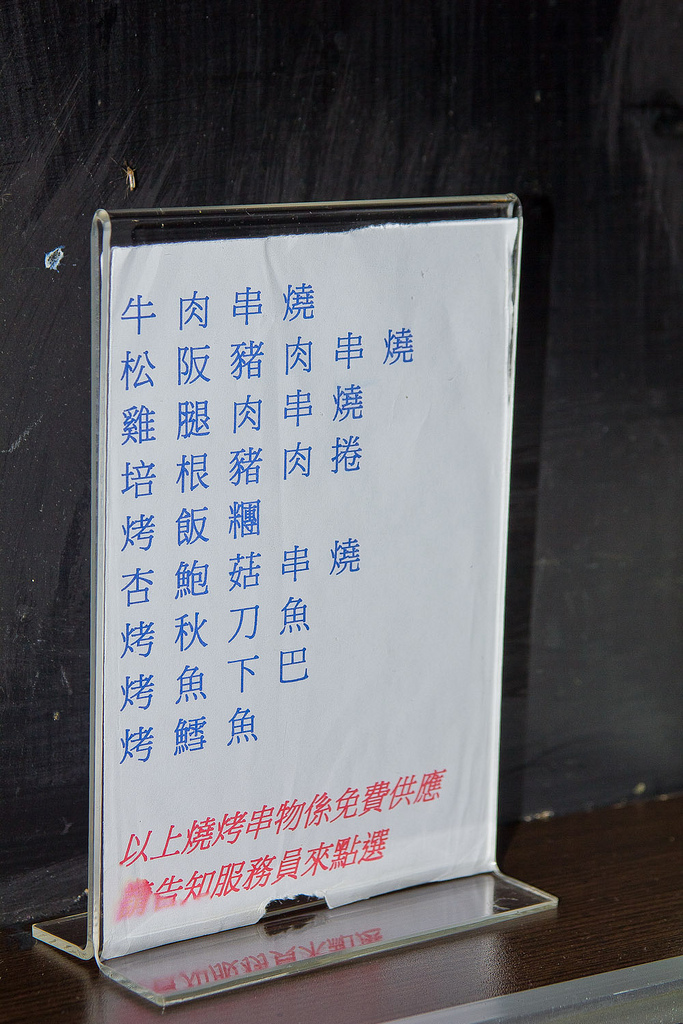 牛肉串燒
松阪豬肉串燒
雞腿肉串燒
培根豬肉捲
烤飯糰
杏鮑菇串燒
烤秋刀魚
烤魚下巴
烤鱈魚
以上燒烤串物係免費供應
告知服務員來點選